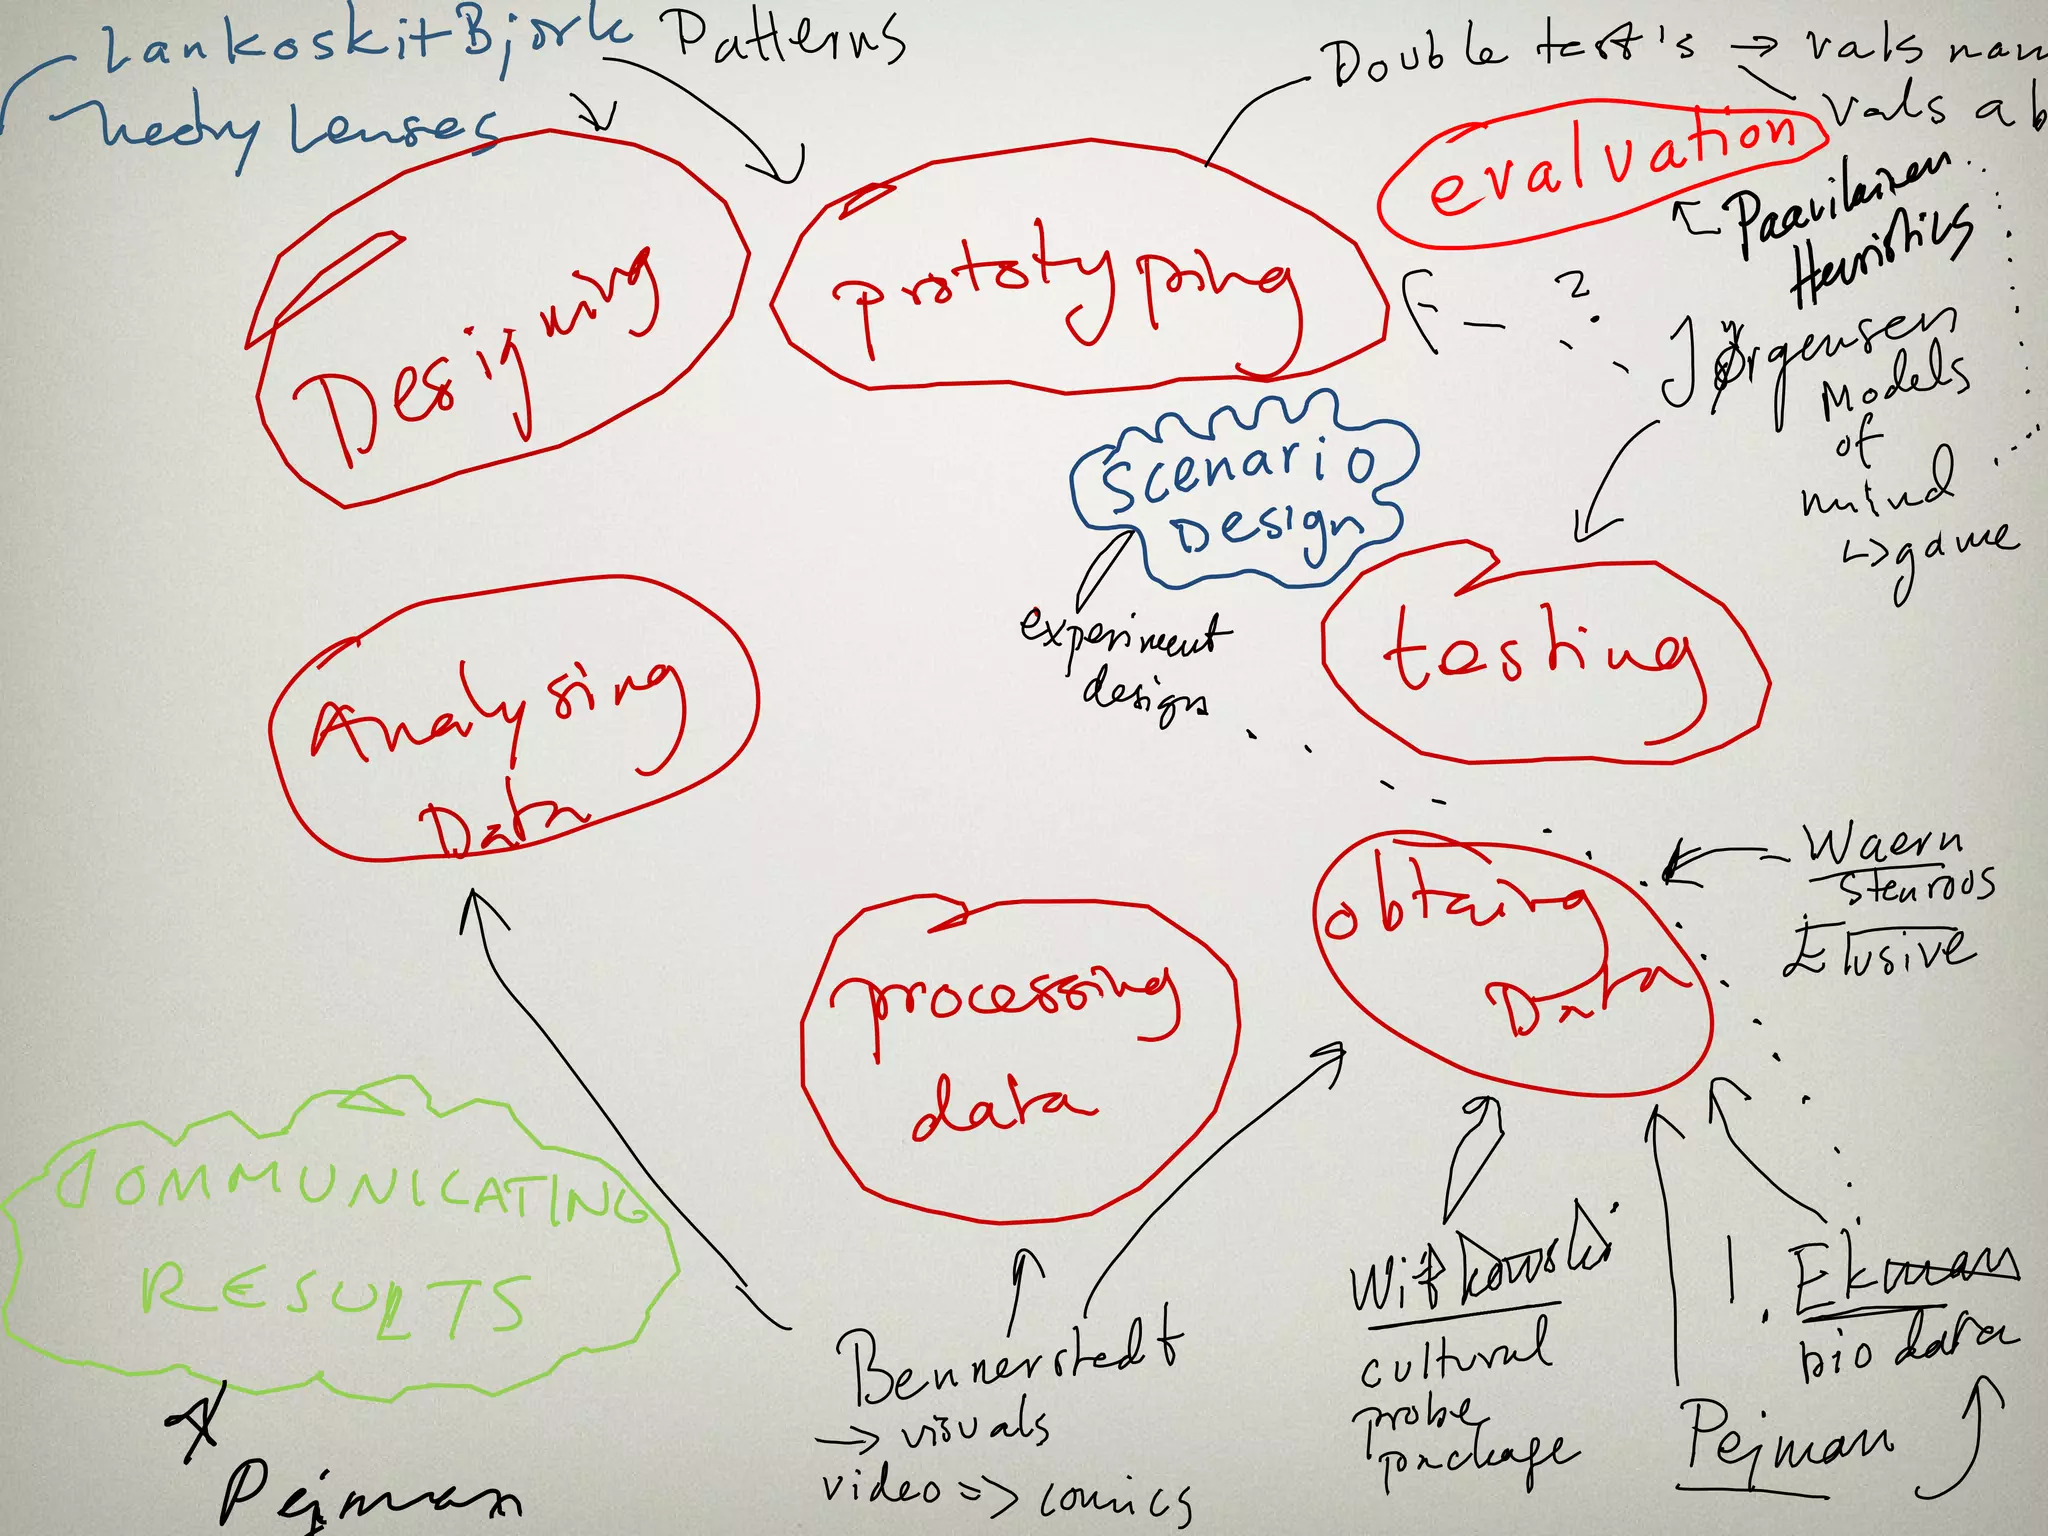 Lankoski+Bjork Patterns
Lenses
Double test's → vals nam
vals ab
evaluation
Paavilainen
Heuristics
Designing
prototyping
?
Jørgensen
Models
of
mind
↳ game
Scenario
Design
experiment
design
testing
Analysing
Data
obtaing
Data
Waern
Stenroos
Elusive
processing
data
COMMUNICATING
RESULTS
Pejman
Bennerstedt
→ visuals
video => comics
Witkowski
cultural
probe
package
1. Ekman
bio data
Pejman